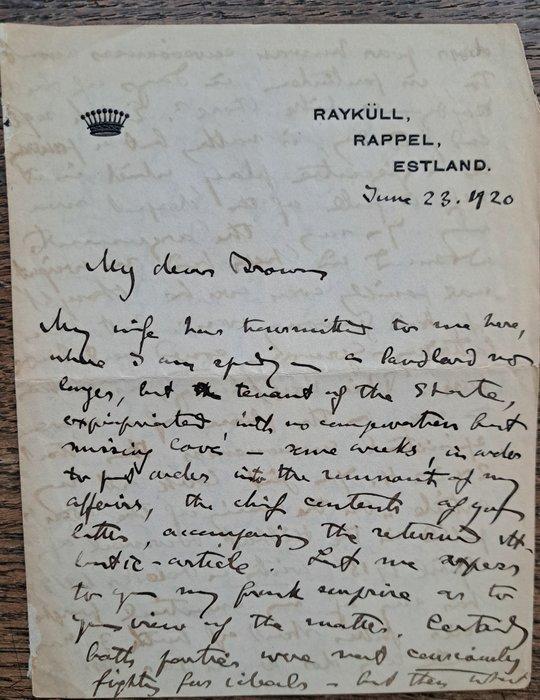 RAYKÜLL,
RAPPEL,
ESTLAND.
June 23. 1920
My dear Brown
My wife has transmitted to me here,
where I am spending — as landlord no
longer, but tenant of the State,
expropriated, with no compensation but
missing — some weeks, in order
to put order into the remnant of my
affairs, the chief contents of your
letter, accompanying the returned At-
lantic-article. Let me express
to you my frank surprise as to
your view of the matter. Certainly
both parties were not consciously
fighting for ideals — but then